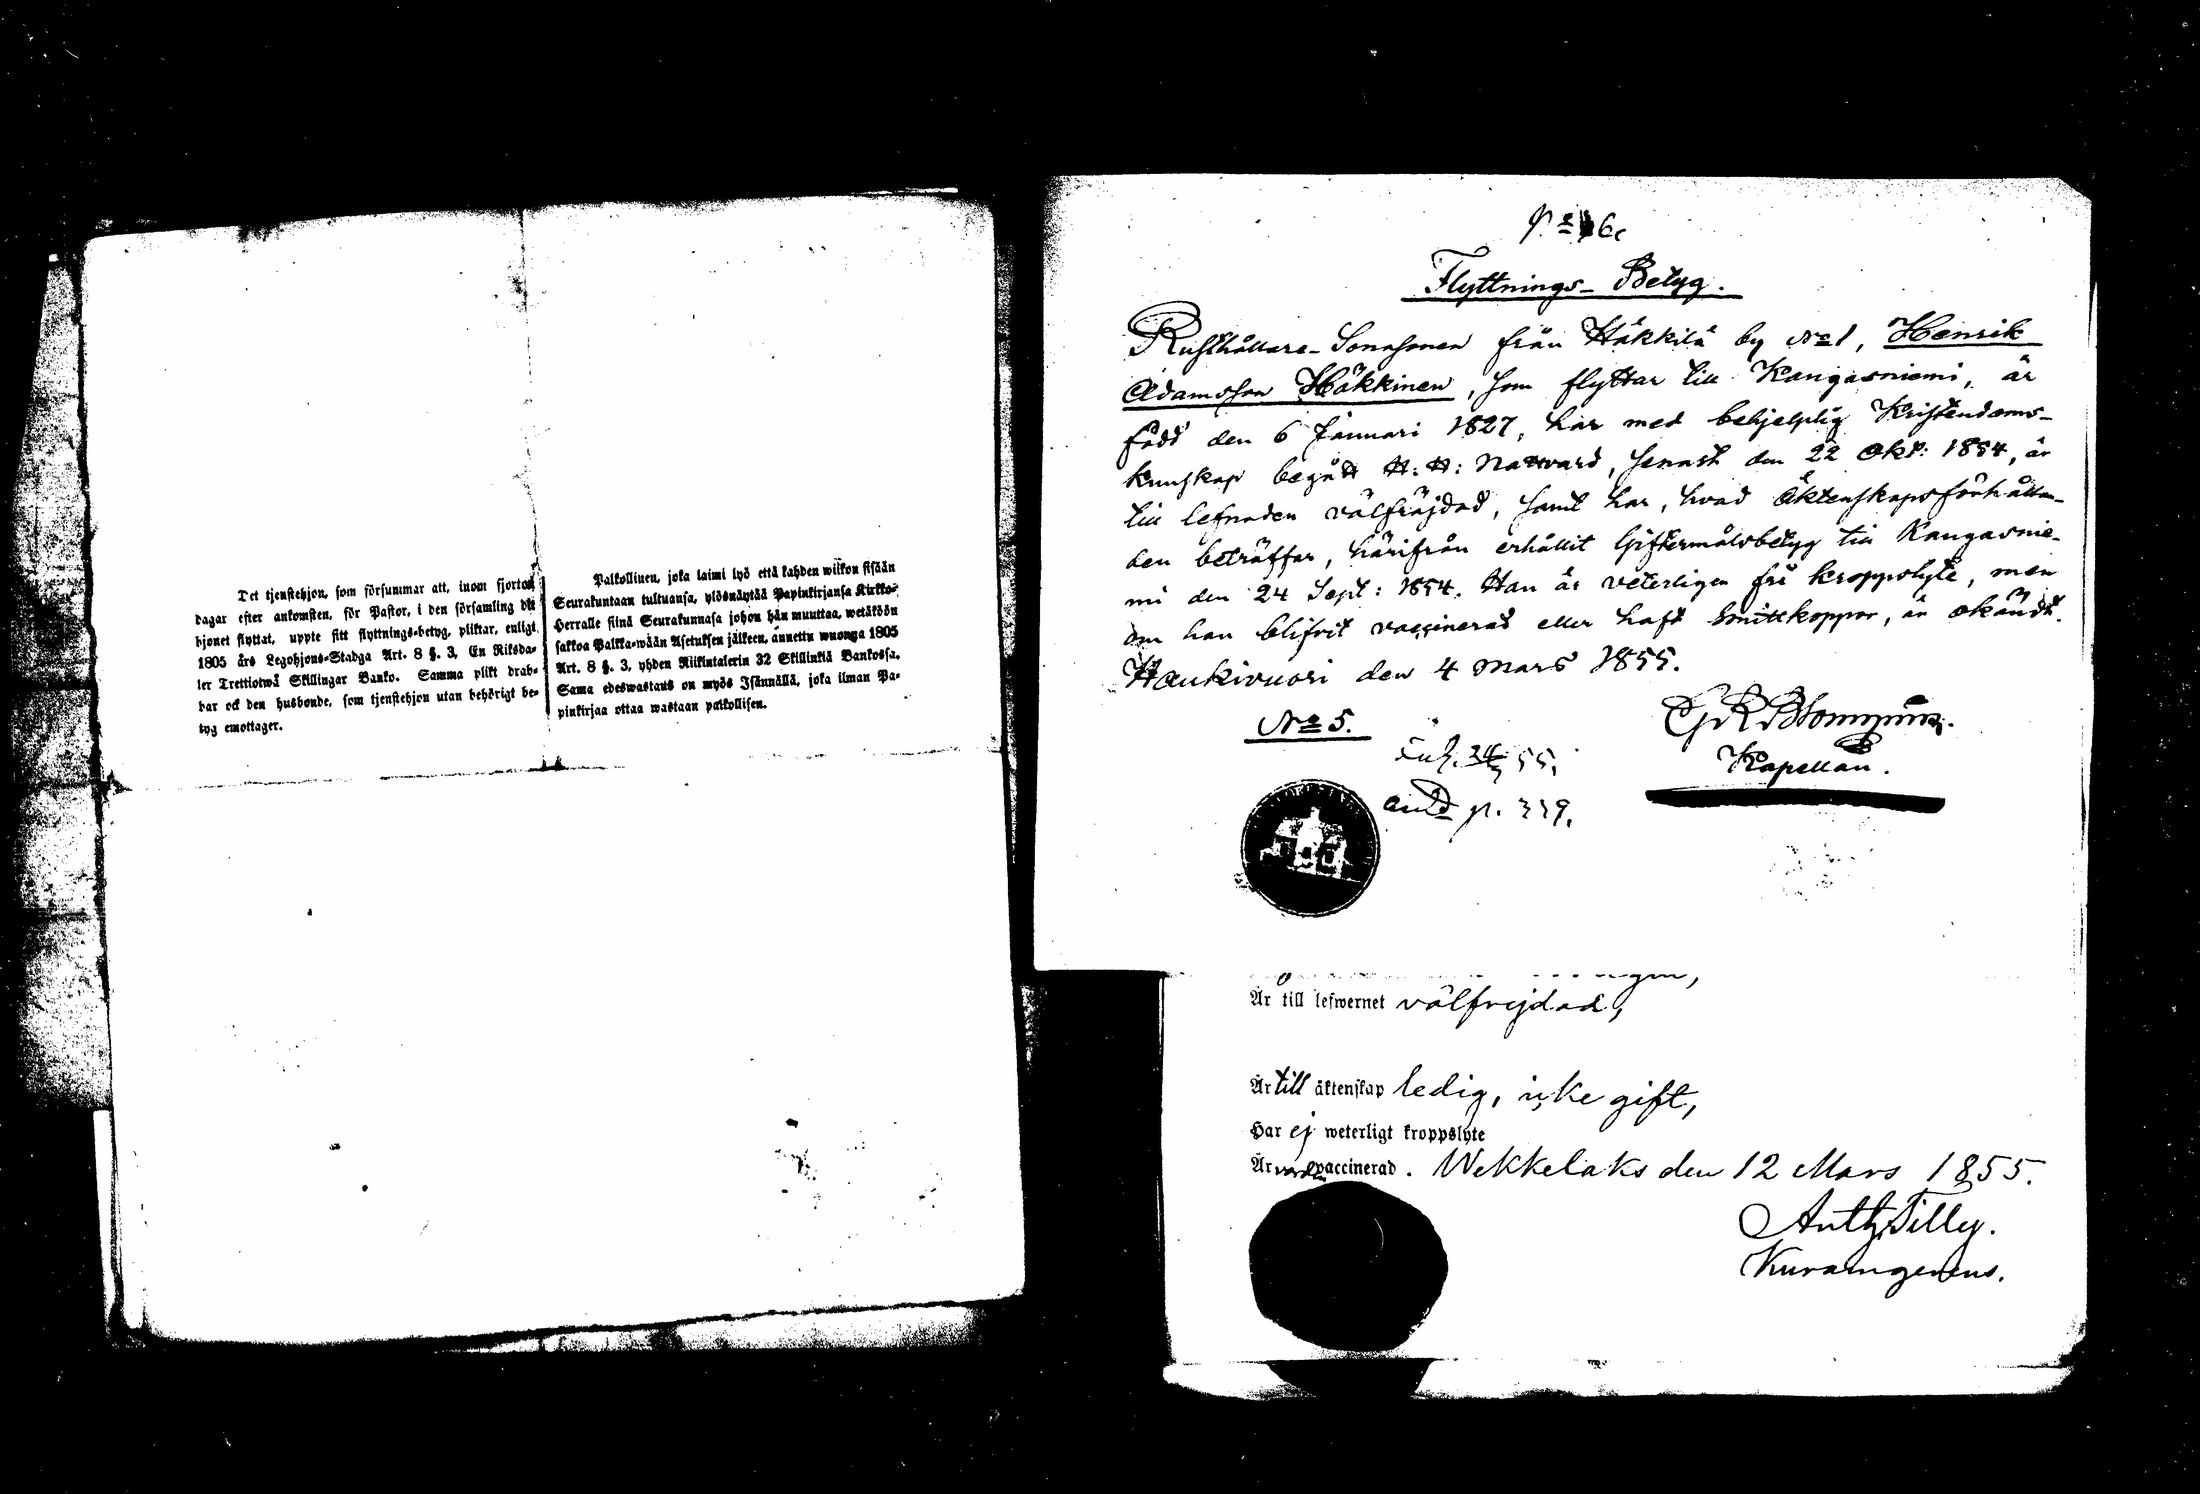 Det tjenstehjon, som försummar att, inom fjorton
dagar efter ankomsten, för Pastor, i den församling dit
hjonet flyttat, uppte sitt flyttnings-betyg, pliktar, enligt
1805 års Legohjons-Stadga Art. 8 §. 3, En Riksda-
ler Trettiotwå Skillingar Banko. Samma plikt drab-
bar ock den husbonde, som tjenstehjon utan behörigt be-
tyg emottager.
Palkollinen, joka laimi lyö että kahden wiikon sisään
Seurakuntaan tultuansa, ylösnäyttää Papinkirjansa Kirkko-
Herralle siinä Seurakunnasa johon hän muuttaa, wetäköön
sakkoa Palkka-wään Asetuksen jälkeen, annettu wuonna 1805
Art. 8 §. 3, yhden Riikintalerin 32 Skillinkiä Bankossa.
Sama edeswastaus on myös Isännällä, joka ilman Pa-
pinkirjaa ottaa wastaan palkollisen.
Flyttnings-Betyg.
Rusthållare-Sonasonen från Häkkilä by No 1, Henrik
Adamsson Häkkinen, som flyttar till Kangasniemi, är
född den 6 Januari 1827, har med behjelplig Kristendoms-
kunskap begått H: H: Nattvard, senast den 22 Okt: 1854, är
till lefnaden välfräjdad, samt har, hvad Äktenskapsförhållan-
den beträffar, härifrån erhållit Giftermålsbetyg till Kangasnie-
mi den 24 Sept: 1854. Han är veterligen fri kroppslyte, men
om han blifvit vaccinerad eller haft Smittkoppor, är okändt.
Haukivuori den 4 Mars 1855.
No 5.
Kapellan.
55.
p. 339.
Är till lefwernet välfrejdad,
Är till äktenskap ledig, icke gift,
Har ej weterligt kroppslyte
Är vaccinerad. Wekkelaks den 12 Mars 1855.
Anth. Tilly.